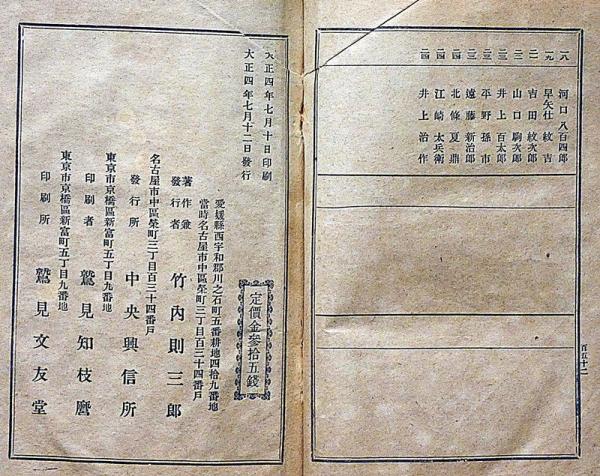 一八 河口八百四郎
一九 早矢仕紋吉
二一 吉田紋次郎
二三 山口駒次郎
二三 井上百太郎
二三 平野孫市
二三 遠藤新治郎
二四 北條夏鼎
二四 江崎太兵衛
二四 井上治作
百五十二
大正四年七月十日印刷
大正四年七月十二日發行
定價金參拾五錢
愛媛縣西宇和郡川之石町五番耕地四拾九番地
當時名古屋市中區榮町三丁目百三十四番戶
著作兼發行者 竹內則三郎
名古屋市中區榮町三丁目百三十四番戶
發行所 中央興信所
東京市京橋區新富町五丁目九番地
印刷者 鷲見知枝麿
東京市京橋區新富町五丁目九番地
印刷所 鷲見文友堂